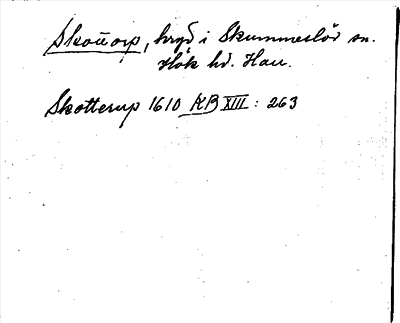 Skottorp, krgd i Skummeslöv sn.
Hök hd. Hall.
Skotterup 1610 KB XIII: 263